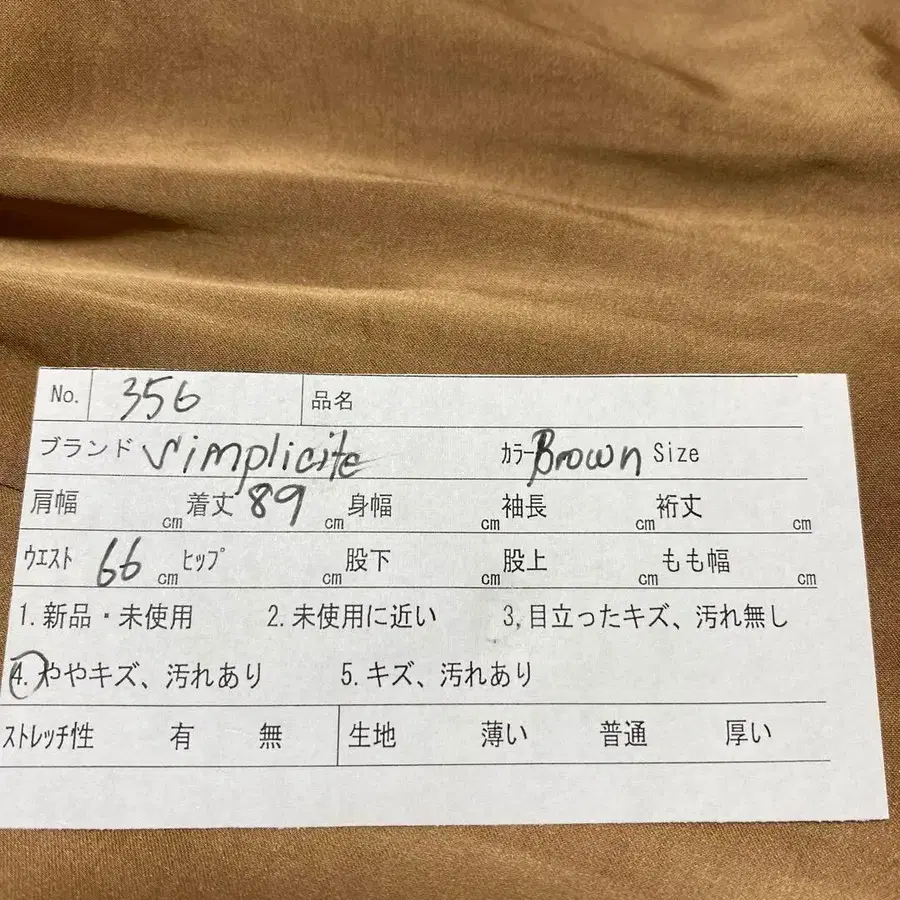 No. 356 品名
ブランド simplicite カラー Brown Size
肩幅 cm 着丈 89 cm 身幅 cm 袖長 cm 裄丈 cm
ウエスト 66 cm ヒップ cm 股下 cm 股上 cm もも幅 cm
1.新品・未使用 2.未使用に近い 3,目立ったキズ、汚れ無し
4.ややキズ、汚れあり 5.キズ、汚れあり
ストレッチ性 有 無 生地 薄い 普通 厚い